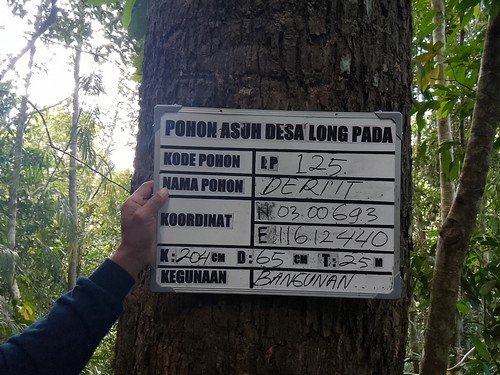 POHON ASUH DESA LONG PADA
KODE POHON LP 125.
NAMA POHON DERIT.
KOORDINAT N 03.00693
E 116.12440
K : 204 CM D : 65 CM T : 25 M
KEGUNAAN BANGUNAN....